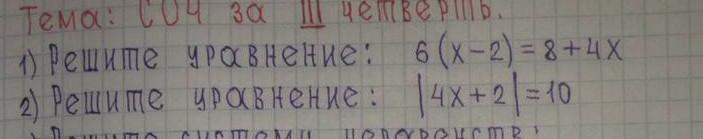 Тема: СОЧ за III четверть.
1) Решите уравнение: 6(x-2)=8+4x
2) Решите уравнение: |4x+2|=10